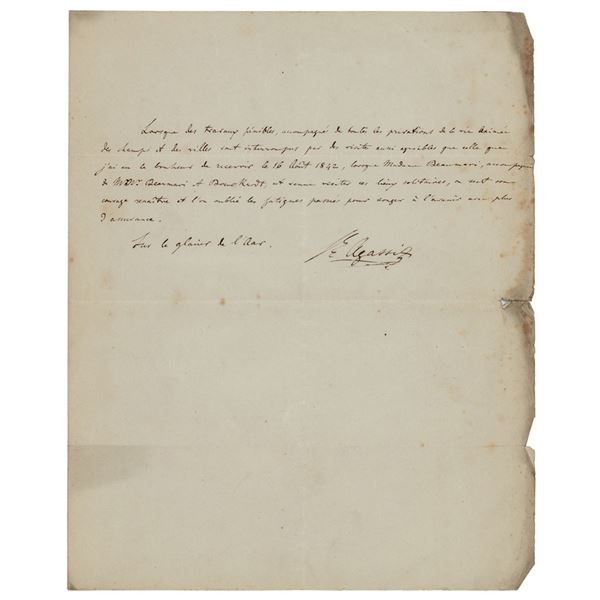 Lorsque des travaux pénibles, accompagné de toutes les privations de la vie animée
des champs et des villes sont interrompus par des visites aussi agréables que celle que
j'ai eu le bonheur de recevoir le 16 Août 1842, lorsque Madame accompagnée
de et est venue visiter ces lieux solitaires, on sent son
courage renaître et l'on oublie les fatigues passées pour songer à l'avenir avec plus
d'assurance.
Sur le glacier de l'Aar.
Ls Agassiz